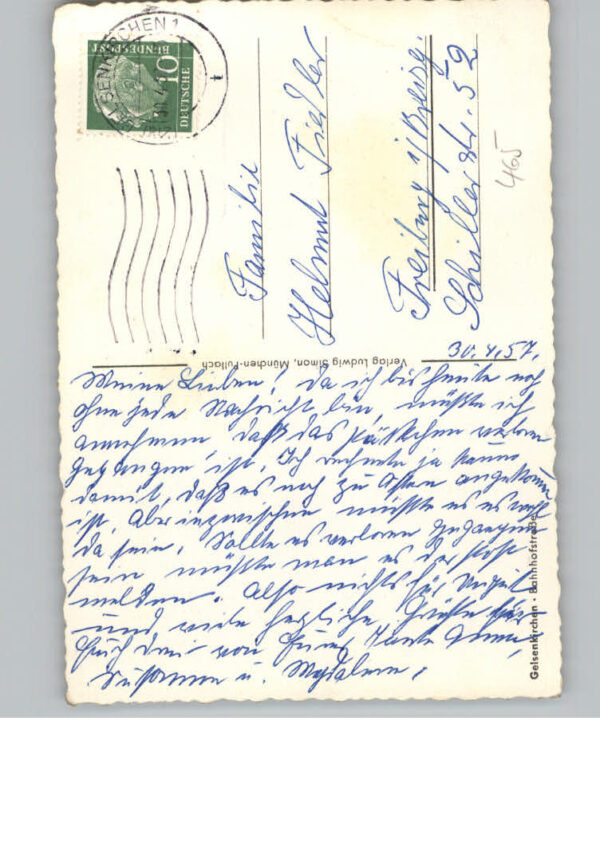 GELSENKIRCHEN 1
DEUTSCHE
BUNDESPOST
10
Familie
Helmut Fiedler
Freiburg i/Breisg.
Schillerstr. 52
465
Verlag Ludwig Simon, München-Pullach
Gelsenkirchen · Bahnhofstraße
30.4.57.
Meine Lieben! Da ich bis heute noch
ohne jede Nachricht bin, müßte ich
annehmen daß das Päckchen verloren
gegangen ist. Ich rechnete ja kaum
damit, daß es noch zu Ostern angekommen
ist. Aber inzwischen müßte es es wohl
da sein. Sollte es verloren gegangen
sein müßte man es der Post
melden. Also nichts für ungut
und viele herzliche Grüße für
Euch drei von Eurer Tante Anna,
Susanne u. Magdalena.